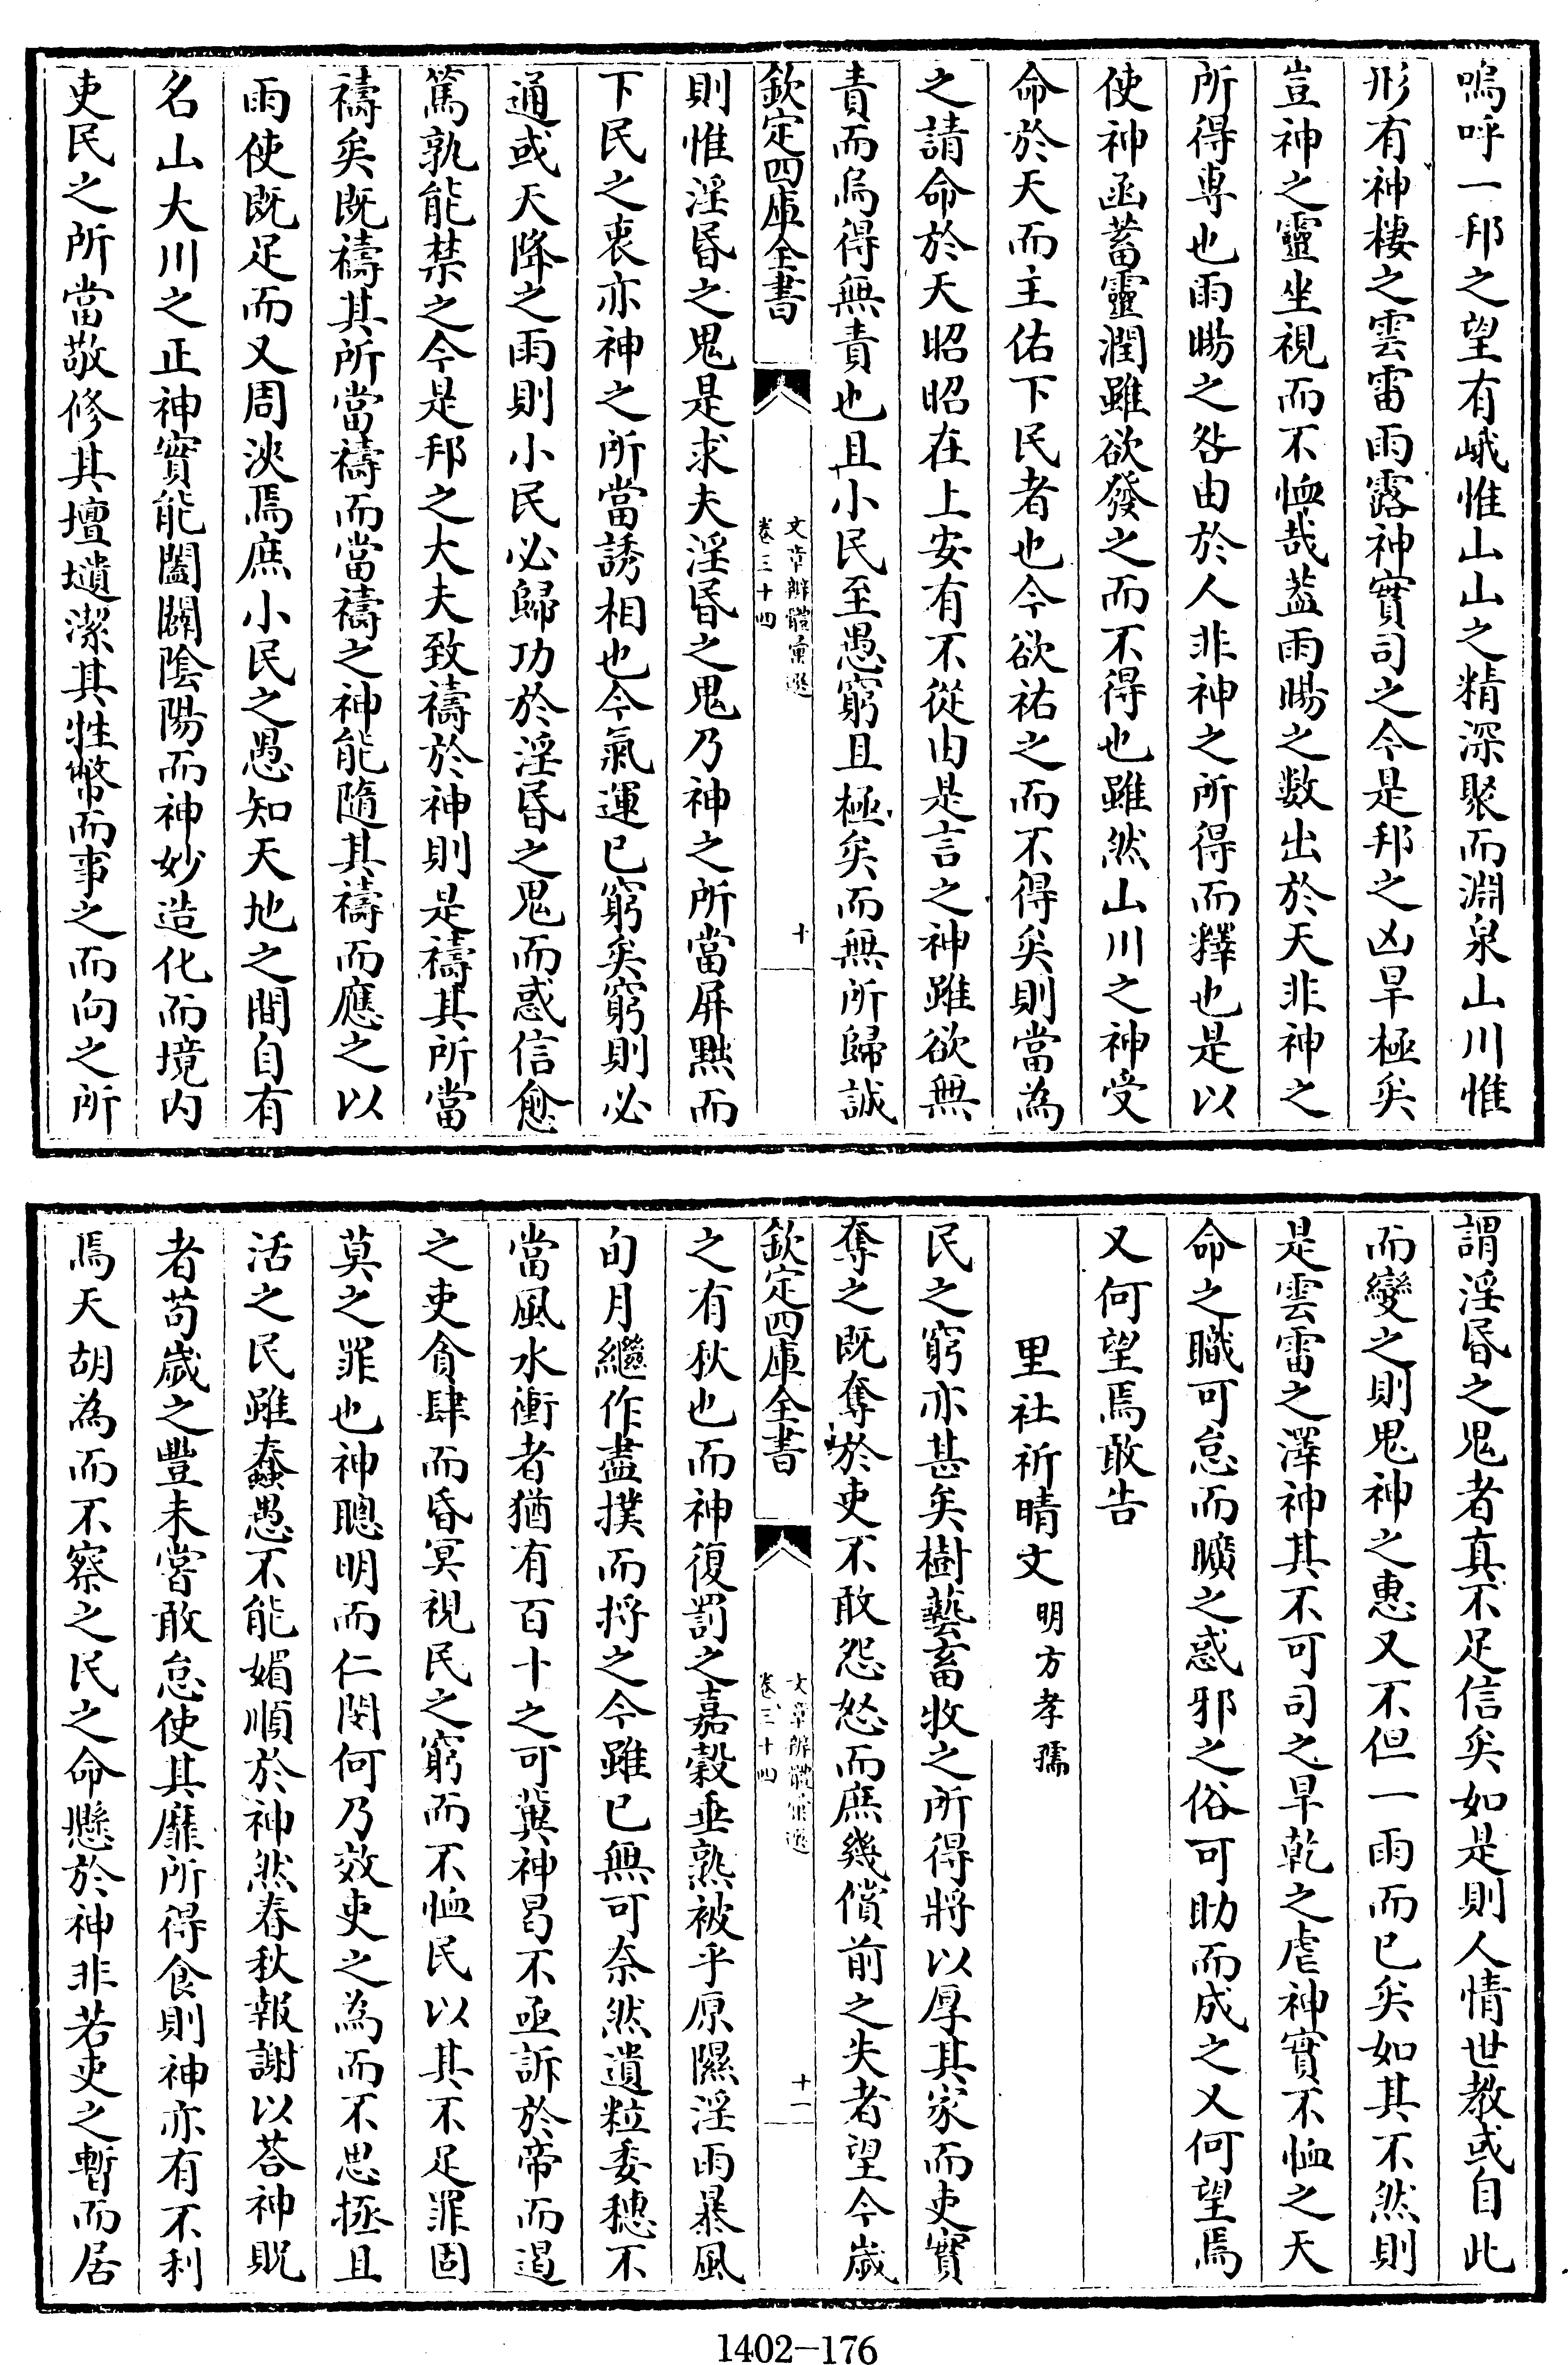 嗚呼一邦之望有峨惟山山之精深聚而淵泉山川惟
形有神棲之雲雷雨露神實司之今是邦之凶旱極矣
豈神之靈坐視而不恤哉葢雨暘之數出於天非神之
所得専也雨暘之咎由於人非神之所得而釋也是以
使神函蓄靈潤雖欲發之而不得也雖然山川之神受
命於天而主佑下民者也今欲祐之而不得矣則當為
之請命於天昭昭在上安有不從由是言之神雖欲無
責而烏得無責也且小民至愚窮且極矣而無所歸誠
欽定四庫全書
文章辨體彚選
卷三十四
十
則惟淫昬之鬼是求夫淫昬之鬼乃神之所當屏黜而
下民之衷亦神之所當誘相也今氣運已窮矣窮則必
通或天降之雨則小民必歸功於淫昬之鬼而惑信愈
篤孰能禁之今是邦之大夫致禱於神則是禱其所當
禱矣既禱其所當禱而當禱之神能隨其禱而應之以
雨使既足而又周浹焉庶小民之愚知天地之間自有
名山大川之正神實能闔闢隂陽而神妙造化而境内
吏民之所當敬修其壇壝潔其牲幣而事之而向之所
謂淫昬之鬼者真不足信矣如是則人情世教或自此
而變之則鬼神之惠又不但一雨而已矣如其不然則
是雲雷之澤神其不可司之旱乾之虐神實不恤之天
命之職可怠而曠之惑邪之俗可助而成之又何望焉
又何望焉敢告
里社祈晴文 明方孝孺
民之窮亦甚矣樹藝畜牧之所得將以厚其家而吏實
奪之既奪於吏不敢怨怒而庶幾償前之失者望今歳
欽定四庫全書
文章辨體彚選
卷三十四
十一
之有秋也而神復罰之嘉穀垂熟被乎原隰淫雨暴風
旬月繼作盡撲而捋之今雖已無可奈然遺粒委穗不
當風水衝者猶有百十之可冀神曷不亟訴於帝而遏
之吏貪肆而昏冥視民之窮而不恤民以其不足罪固
莫之罪也神聰明而仁閔何乃效吏之為而不思拯且
活之民雖蠢愚不能媚順於神然春秋報謝以荅神貺
者苟歳之豐未嘗敢怠使其靡所得食則神亦有不利
焉天胡為而不察之民之命懸於神非若吏之暫而居
1402—176